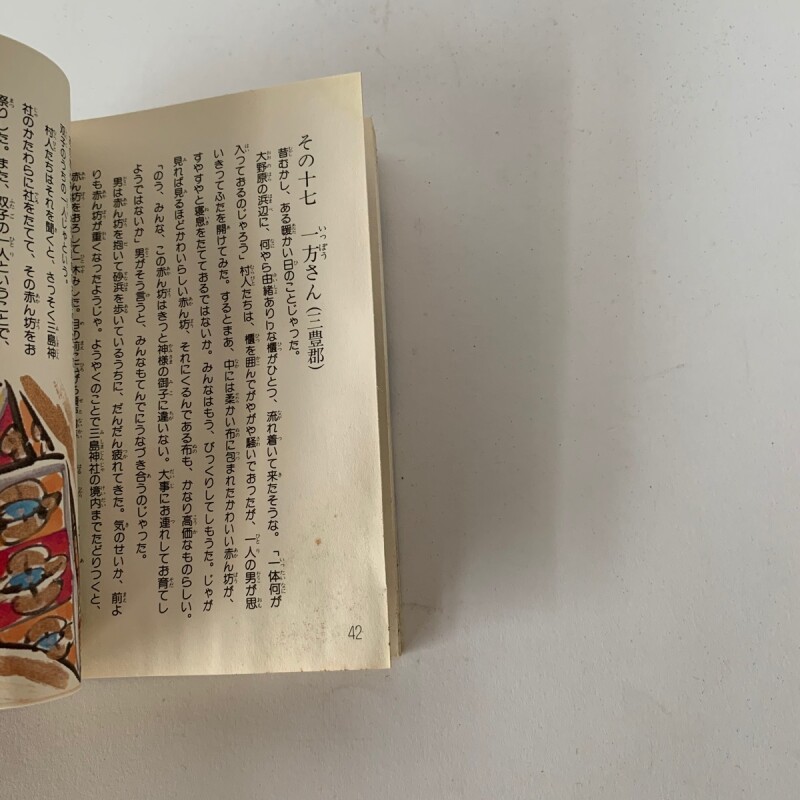 その十七 一方さん（三豊郡）
昔むかし、ある暖かい日のことじゃった。
大野原の浜辺に、何やら由緒ありげな櫃がひとつ、流れ着いて来たそうな。「一体何が
入っておるのじゃろう」村人たちは、櫃を囲んでがやがや騒いでおったが、一人の男が思
いきってふたを開けてみた。するとまあ、中には柔かい布に包まれたかわいい赤ん坊が、
すやすやと寝息をたてておるではないか。みんなはもう、びっくりしてしもうた。じゃが
見れば見るほどかわいらしい赤ん坊、それにくるんである布も、かなり高価なものらしい。
「のう、みんな、この赤ん坊はきっと神様の御子に違いない。大事にお連れしてお育てし
ようではないか」男がそう言うと、みんなもてんでにうなづき合うのじゃった。
男は赤ん坊を抱いて砂浜を歩いているうちに、だんだん疲れてきた。気のせいか、前よ
りも赤ん坊が重くなったようじゃ。ようやくのことで三島神社の境内までたどりつくと、
赤ん坊をおろして一休みした。
村人たちはそれを聞くと、さっそく三島神
社のかたわらに社をたてて、その赤ん坊をお
祭りした。また、双子の一人ということで、
42